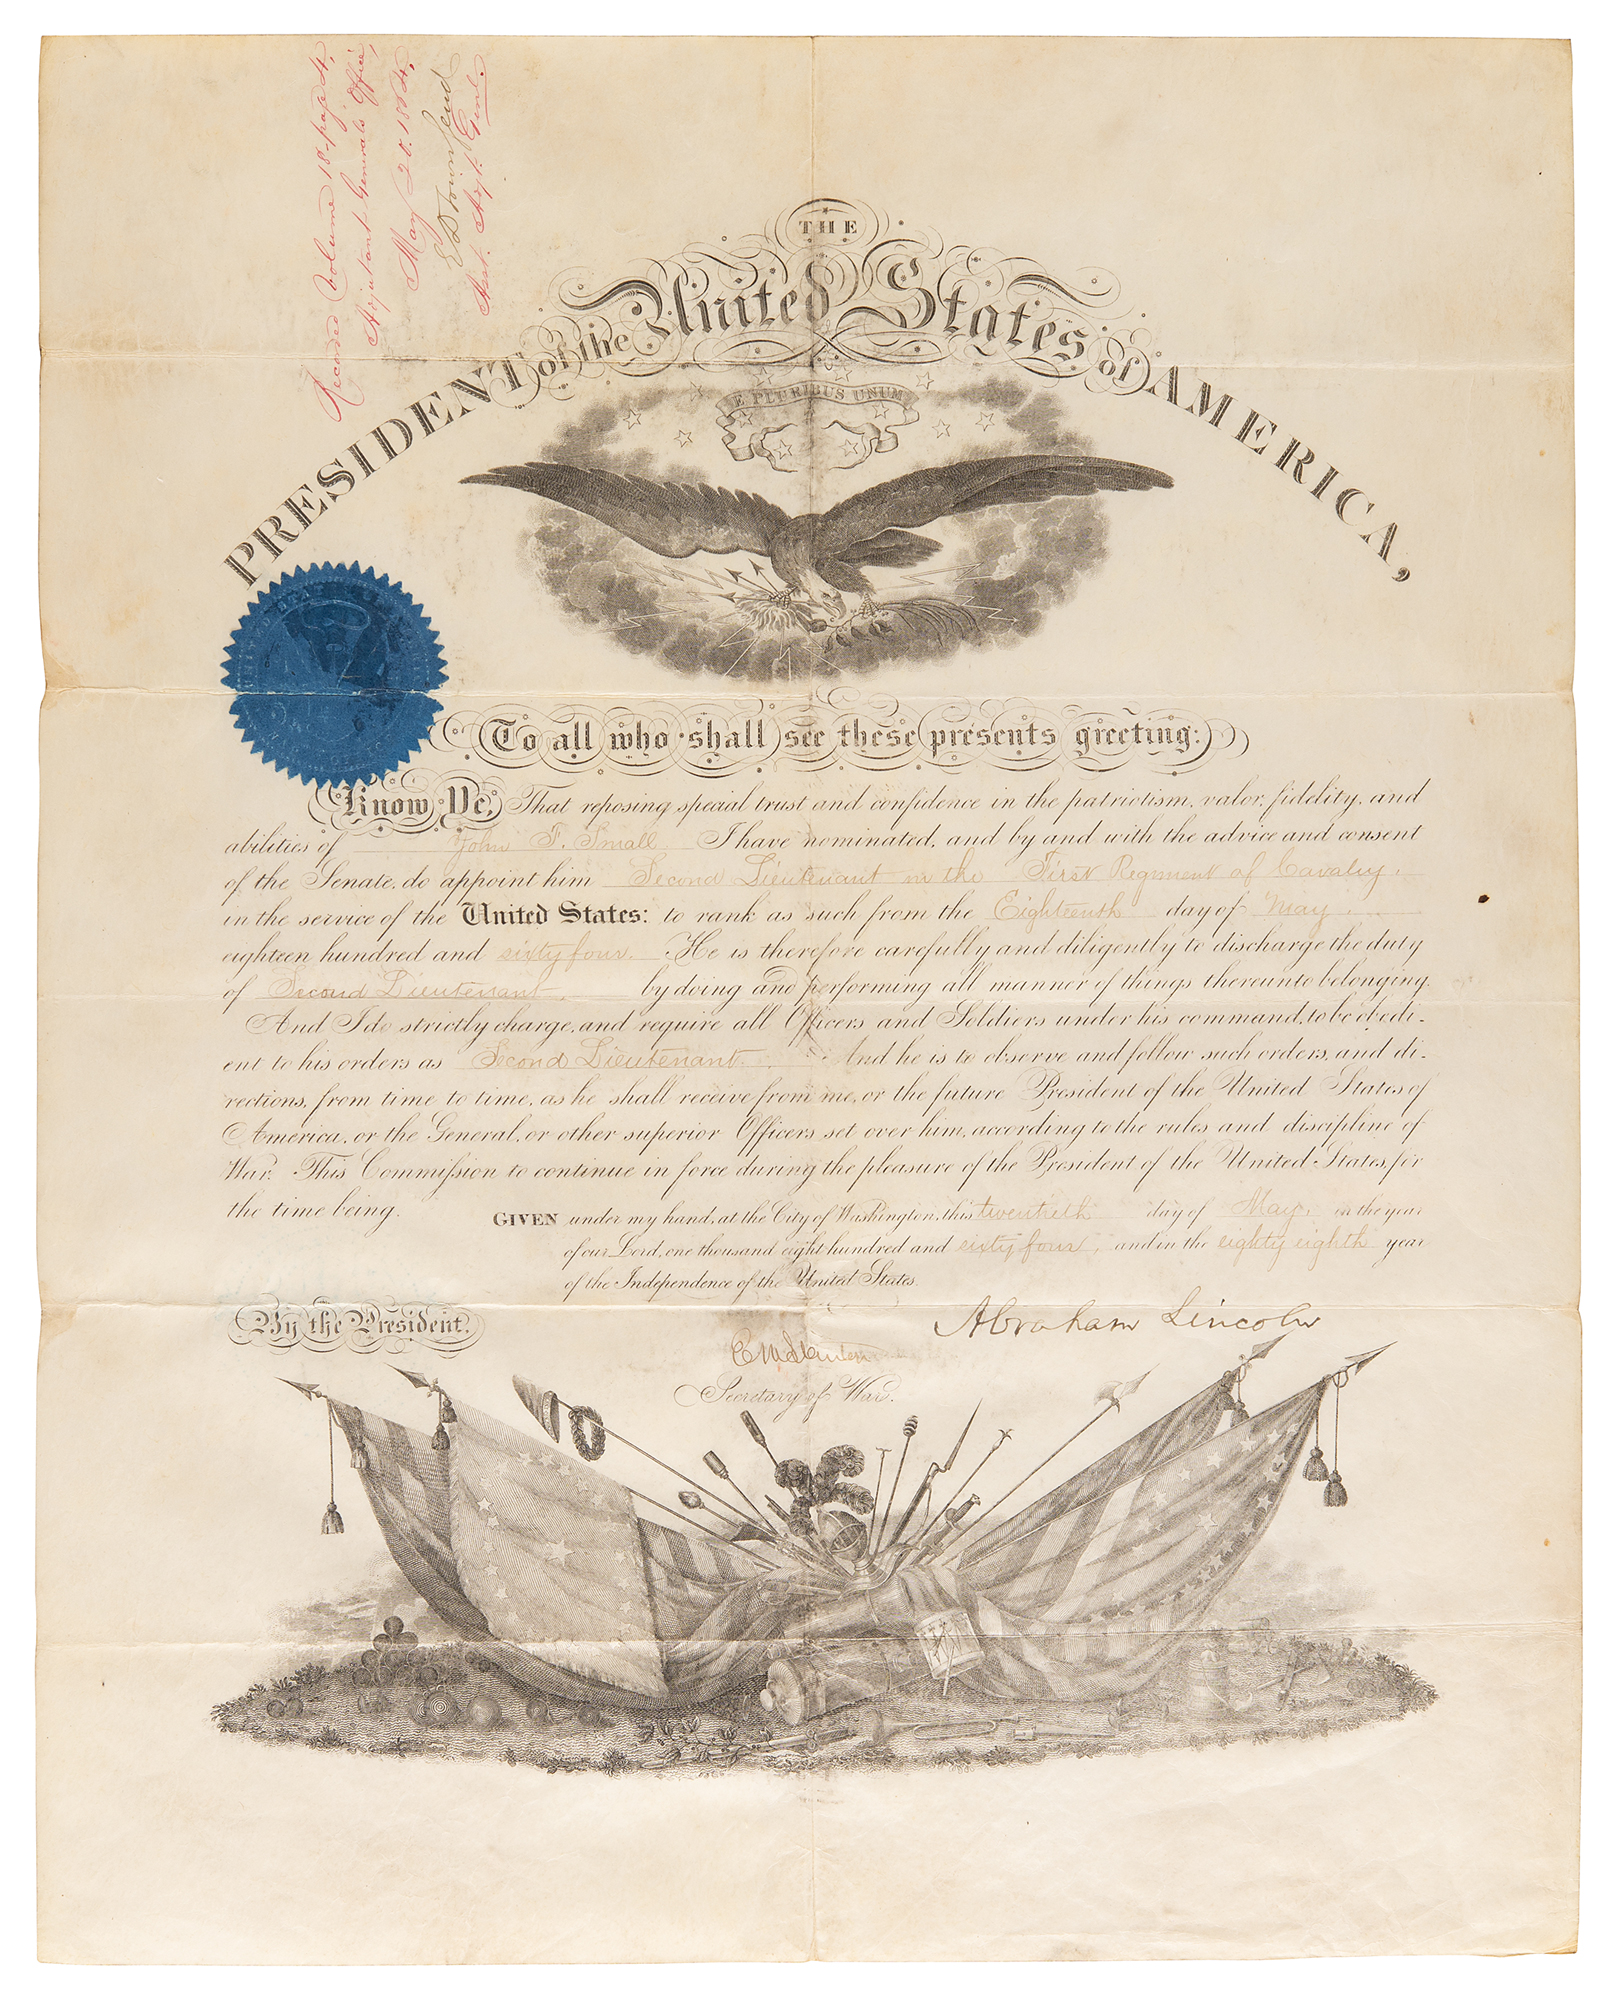 Recorded Volume 18, page 4,
Adjutant Generals Office,
May 20. 1864,
E D Townsend
Asst. Adjt. Genl.
THE
PRESIDENT of the United States of AMERICA,
E PLURIBUS UNUM
To all who shall see these presents greeting:
Know Ye, That reposing special trust and confidence in the patriotism, valor, fidelity, and
abilities of John T. Small I have nominated, and by and with the advice and consent
of the Senate, do appoint him Second Lieutenant in the First Regiment of Cavalry,
in the service of the United States: to rank as such from the Eighteenth day of May
eighteen hundred and sixty four. He is therefore carefully and diligently to discharge the duty
of Second Lieutenant, by doing and performing all manner of things thereunto belonging.
And I do strictly charge, and require all Officers and Soldiers under his command, to be obedi-
ent to his orders as Second Lieutenant. And he is to observe and follow such orders, and di-
rections, from time to time, as he shall receive from me, or the future President of the United States of
America, or the General, or other superior Officers set over him, according to the rules and discipline of
War. This Commission to continue in force during the pleasure of the President of the United States, for
the time being.
GIVEN under my hand, at the City of Washington, this twentieth day of May, in the year
of our Lord, one thousand eight hundred and sixty four, and in the eighty eighth year
of the Independence of the United States.
By the President.
Abraham Lincoln
E M Stanton
Secretary of War.